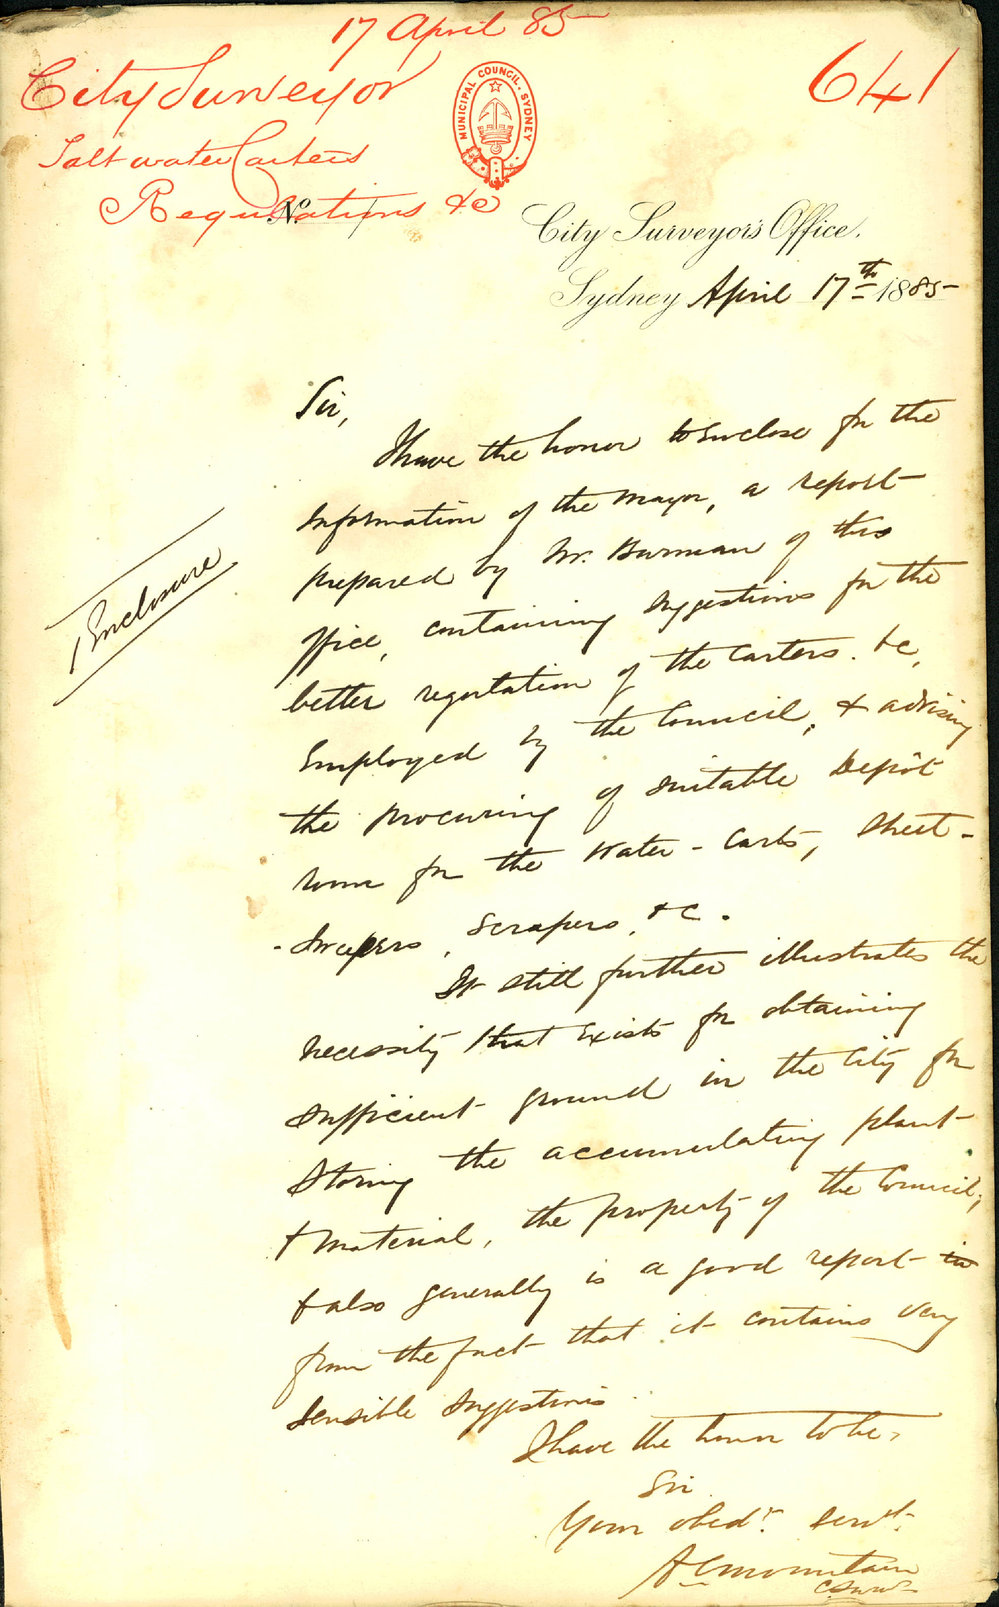 17 April 85
641
City Surveyor
Salt water Carters
Regulations &c
MUNICIPAL COUNCIL. SYDNEY
No.
City Surveyor's Office,
Sydney April 17th 1885
Sir,
I have the honor to enclose for the
information of the Mayor, a report
prepared by Mr. Burman of this
office, containing suggestions for the
better regulation of the Carters. &c,
employed by the Council, & advising
the procuring of suitable Depôt
room for the Water-Carts, Street-
-Sweepers, Scrapers, &c.
1 Enclosure
It still further illustrates the
necessity that exists for obtaining
sufficient ground in the City for
storing the accumulating plant
& material, the property of the Council;
& also generally is a good report in
from the fact that it contains very
sensible suggestions
I have the honor to be,
Sir
Your obedt. servt.
A C Mountain
C Surv